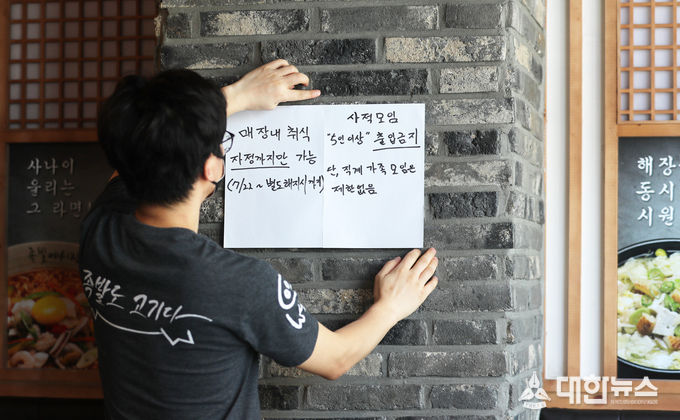 매장내 취식
자정까지만 가능
(7/22 ~ 별도해지시 까지)
사적모임
"5인이상" 출입금지
단, 직계 가족 모임은
제한없음
사나이
울리는
그 라면!
족발도 고기다
해장
동시
시원
대한뉴스